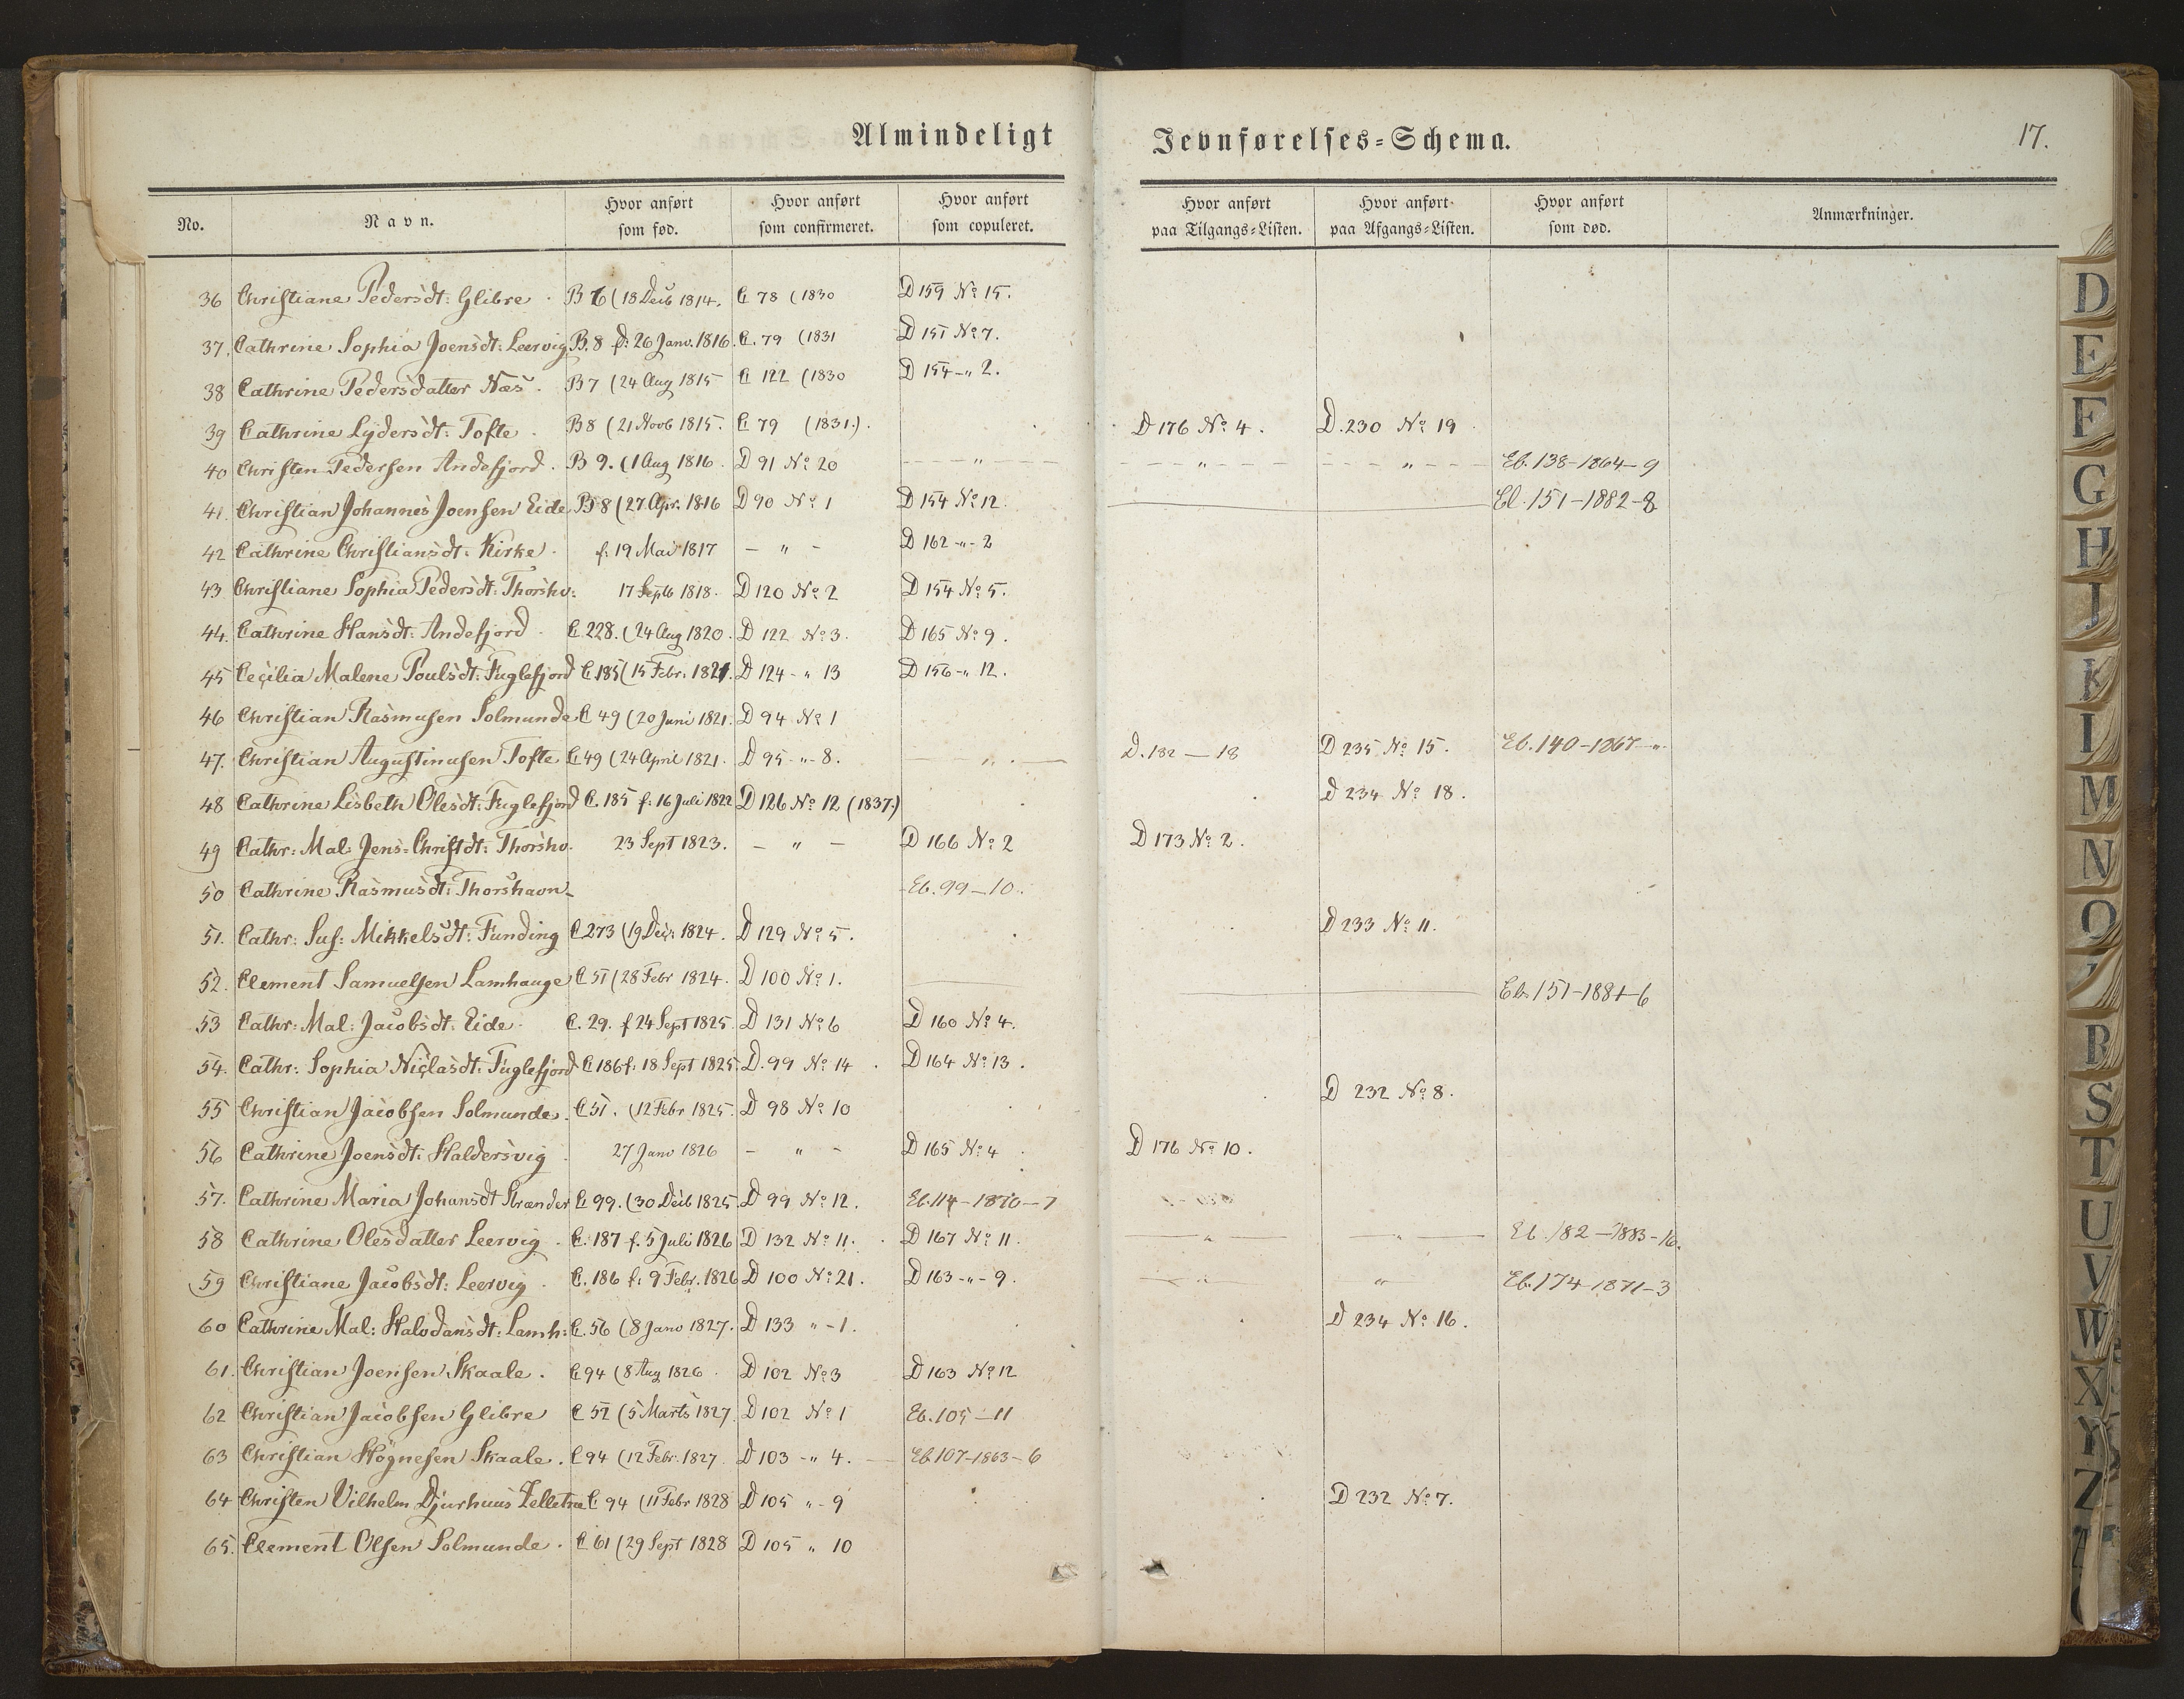 Almindeligt Jevnførelses=Schema. 17.
No. Navn. Hvor anført som fød. Hvor anført som confirmeret. Hvor anført som copuleret. Hvor anført paa Tilgangs=Listen. Hvor anført paa Afgangs=Listen. Hvor anført som død. Anmærkninger.
36 Christiane Pedersdt: Glibre. B 6 (18 Decb 1814. C 78 (1830 D 159 No 15.
37. Cathrine Sophia Joensdt: Leervig B. 8 f: 26 Janv. 1816. C. 79 (1831 D 151 No 7.
38 Cathrine Pedersdatter Næs. B 7 (24 Aug 1815 C 122 (1830 D 154 -„ 2.
39 Cathrine Lydersdt: Tofte. B 8 (21 Novb 1815. C 79 (1831.). D 176 No 4. D. 230 No 19
40 Christen Pedersen Andefjord. B 9. (1 Aug 1816. D 91 No 20 - - - „ - - - - - - „ - - - - - - „ - - - Eb. 138-1864-9
41. Christian Johannes Joensen Eide B 8 (27 Apr. 1816 D 90 No 1 D 154 No 12. Eb. 151-1882-8
42 Cathrine Christiansdt: Kirke. f: 19 Mai 1817 - „ - D 162 -„- 2
43 Christiane Sophia Pedersdt: Thorshv: 17 Septb 1818. D 120 No 2 D 154 No 5.
44. Cathrine Hansdt: Andefjord. C 228. (24 Aug 1820. D 122 No 3. D 165 No 9.
45 Cecilia Malene Poulsdt: Fuglefjord C 185 (15 Febr. 1821. D 124 -„ 13 D 156 -„ 12.
46 Christian Rasmusen Solmunde C 49 (20 Juni 1821. D 94 No 1
47. Christian Augustinusen Tofte C 49 (24 April 1821. D 95 -„- 8. — „ — D. 182 — 18 D 235 No 15. Eb. 140-1867-„-
48 Cathrine Lisbeth Olesdt: Fuglefjord C. 185 f: 16 Juli 1822 D 126 No 12 (1837.) D 234 No 18.
49 Cathr: Mal: Jens=Christdt: Thorshv. 23 Sept 1823. - „ - D 166 No 2 D 173 No 2.
50 Cathrine Rasmusdt: Thorshavn- Eb. 99-10.
51. Cathr: Sus: Mikkelsdt: Funding C 273 (19 Dec: 1824. D 129 No 5. D 233 No 11.
52. Clement Samuelsen Lamhauge C 51 (28 Febr 1824. D 100 No 1. Eb. 151-1881-6
53 Cathr: Mal: Jacobsdt: Eide. C. 29. f 24 Sept 1825. D 131 No 6 D 160 No 4.
54. Cathr: Sophia Niclasdt: Fuglefjord C 186 f: 18 Sept 1825. D. 99 No 14. D 164 No 13.
55 Christian Jacobsen Solmunde. C 51. (12 Febr 1825. D 98 No 10 D 232 No 8.
56 Cathrine Joensdt: Haldersvig. 27 Janv 1826 - „ - D 165 No 4 D 176 No 10.
57. Cathrine Maria Johansdt Strænder C 99. (30 Decb 1825. D 99 No 12. Eb. 114-1870-7
58 Cathrine Olesdatter Leervig. C. 187 f. 5 Juli 1826 D 132 No 11. D 167 No 11. — „ — — „ — Eb. 182-1883-16.
59 Christiane Jacobsdt: Leervig. C. 186 f: 9 Febr. 1826 D 100 No 21. D 163 -„- 9. — „ — „ Eb. 174-1871-3
60 Cathrine Mal: Halvdansdt: Lamh: C. 56 (8 Janv 1827. D 133 „ - 1. D 234 No 16.
61. Christian Joensen Skaale. C 94 (8 Aug 1826. D 102 No 3 D 163 No 12
62 Christian Jacobsen Glibre C 52 (5 Marts 1827. D 102 No 1 Eb. 105-11
63 Christian Høgnesen Skaale. C 94 (12 Febr. 1827 D 103 -„ 4. Eb 107-1863-6
64 Christen Vilhelm Djurhuus C 94 (11 Febr 1828 D 105 „- 9 D 232 No 7.
65. Clement Olsen Solmunde. C 61 (29 Sept 1828 D 105 „ 10
D
E
F
G
H
J
K
L
M
N
O
R
S
T
U
V
W
X
Y
Z